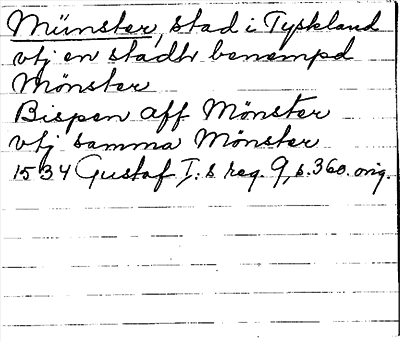 Münster, stad i Tyskland
vtj en stadh benempd
Mönster
Bispen aff Mönster
vtj samma Mönster
1534 Gustaf I:s reg. 9, s. 360. orig.